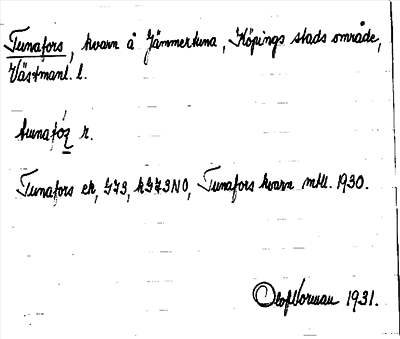 Tunafors, kvarn å Jämmertuna, Köpings stads område,
Västmanl. l.
tunafóʐ r.
Tunafors ek, G73, kG73NO, Tunafors kvarn mtl. 1930.
Olof Norman 1931.